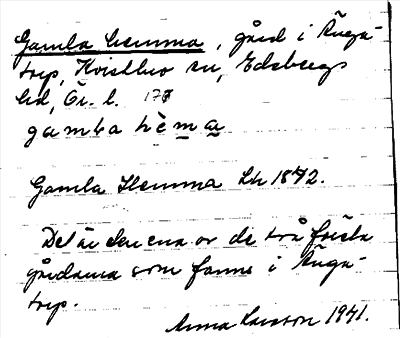 Gamla Hemma, gård i Änga-
torp, Kvistbro sn, Edsbergs
hd, Ör. l. 178
gamla hèma
Gamla Hemma Lh 1872.
Det är den ena av de två första
gårdarna som fanns i Änga-
torp.
Anna Larsson 1941.